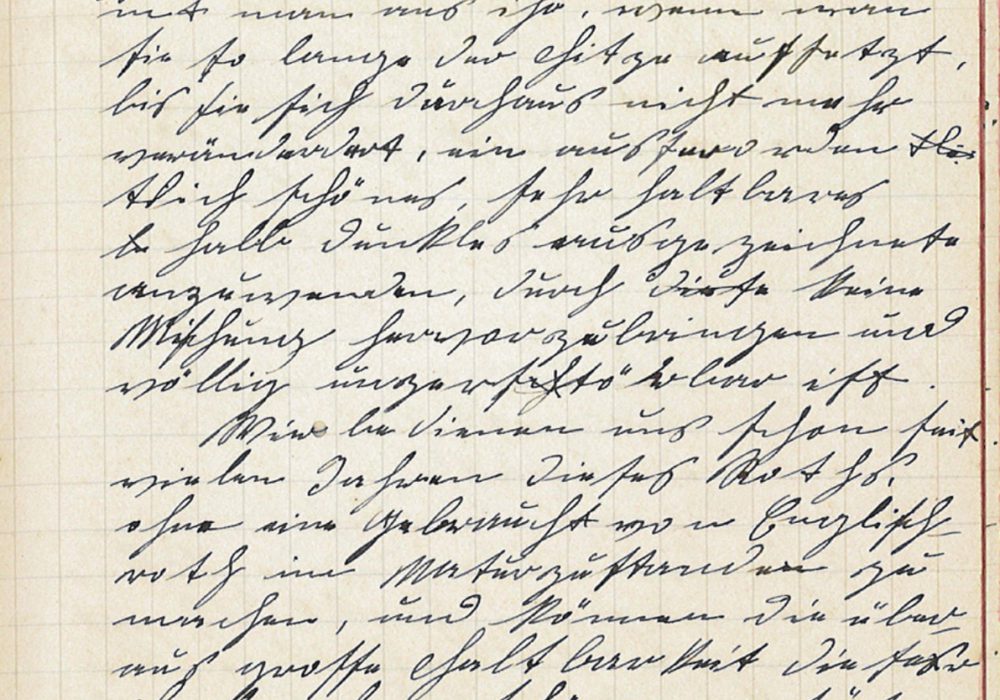 mit man aus ihr, wenn man
sie so lange der Hitze aussetzt,
bis sie sich durchaus nicht mehr
verändert, ein ausserorden
tlich schönes, sehr haltbares
halb dunkles ausgezeichnete
anzuwenden, durch diese keine
Mischung hervorzubringen und
völlig unzerstörbar ist.
Wir bedienen uns schon seit
vielen Jahren dieses Roths.
ohne eine Gebraucht von Englisch-
roth im Naturzustanden zu
machen, und können die über-
aus grosse Haltbarkeit dieser